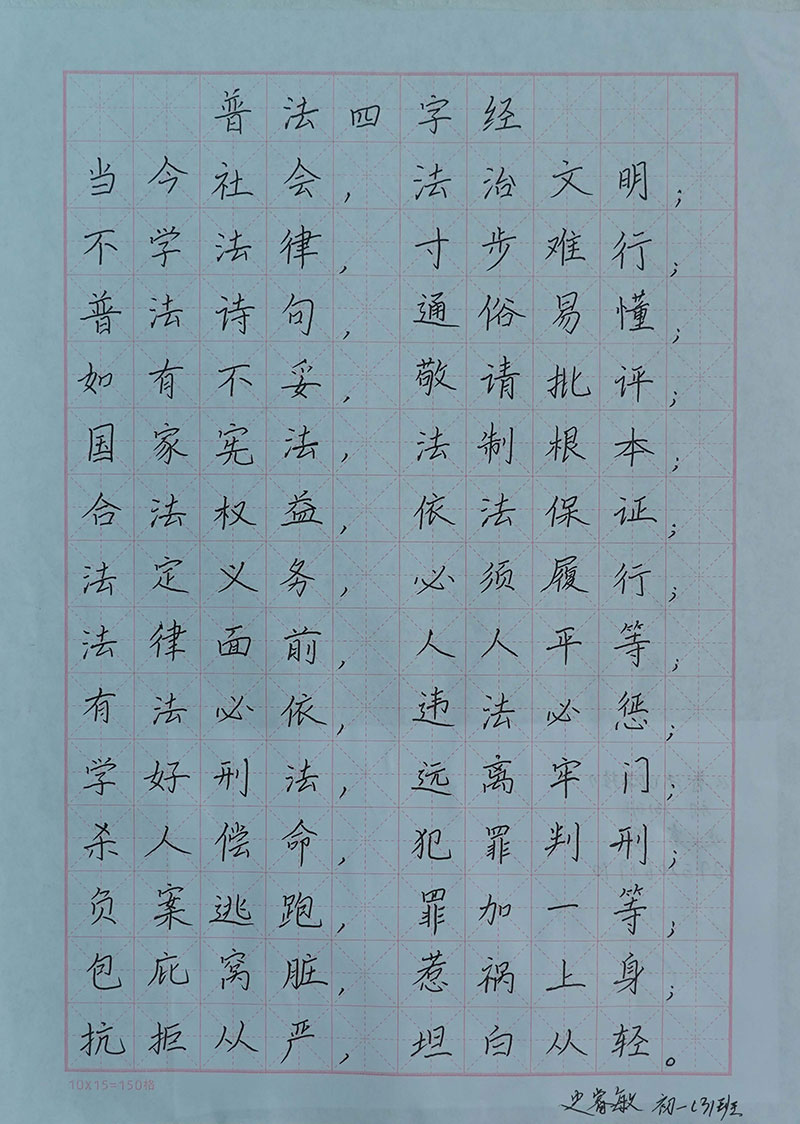 普法四字经
当今社会，法治文明；
不学法律，寸步难行；
普法诗句，通俗易懂；
如有不妥，敬请批评；
国家宪法，法制根本；
合法权益，依法保证；
法定义务，必须履行；
法律面前，人人平等；
有法必依，违法必惩；
学好刑法，远离牢门；
杀人偿命，犯罪判刑；
负案逃跑，罪加一等；
包庇窝脏，惹祸上身；
抗拒从严，坦白从轻。
10X15=150格
史睿敏 初一(3)班